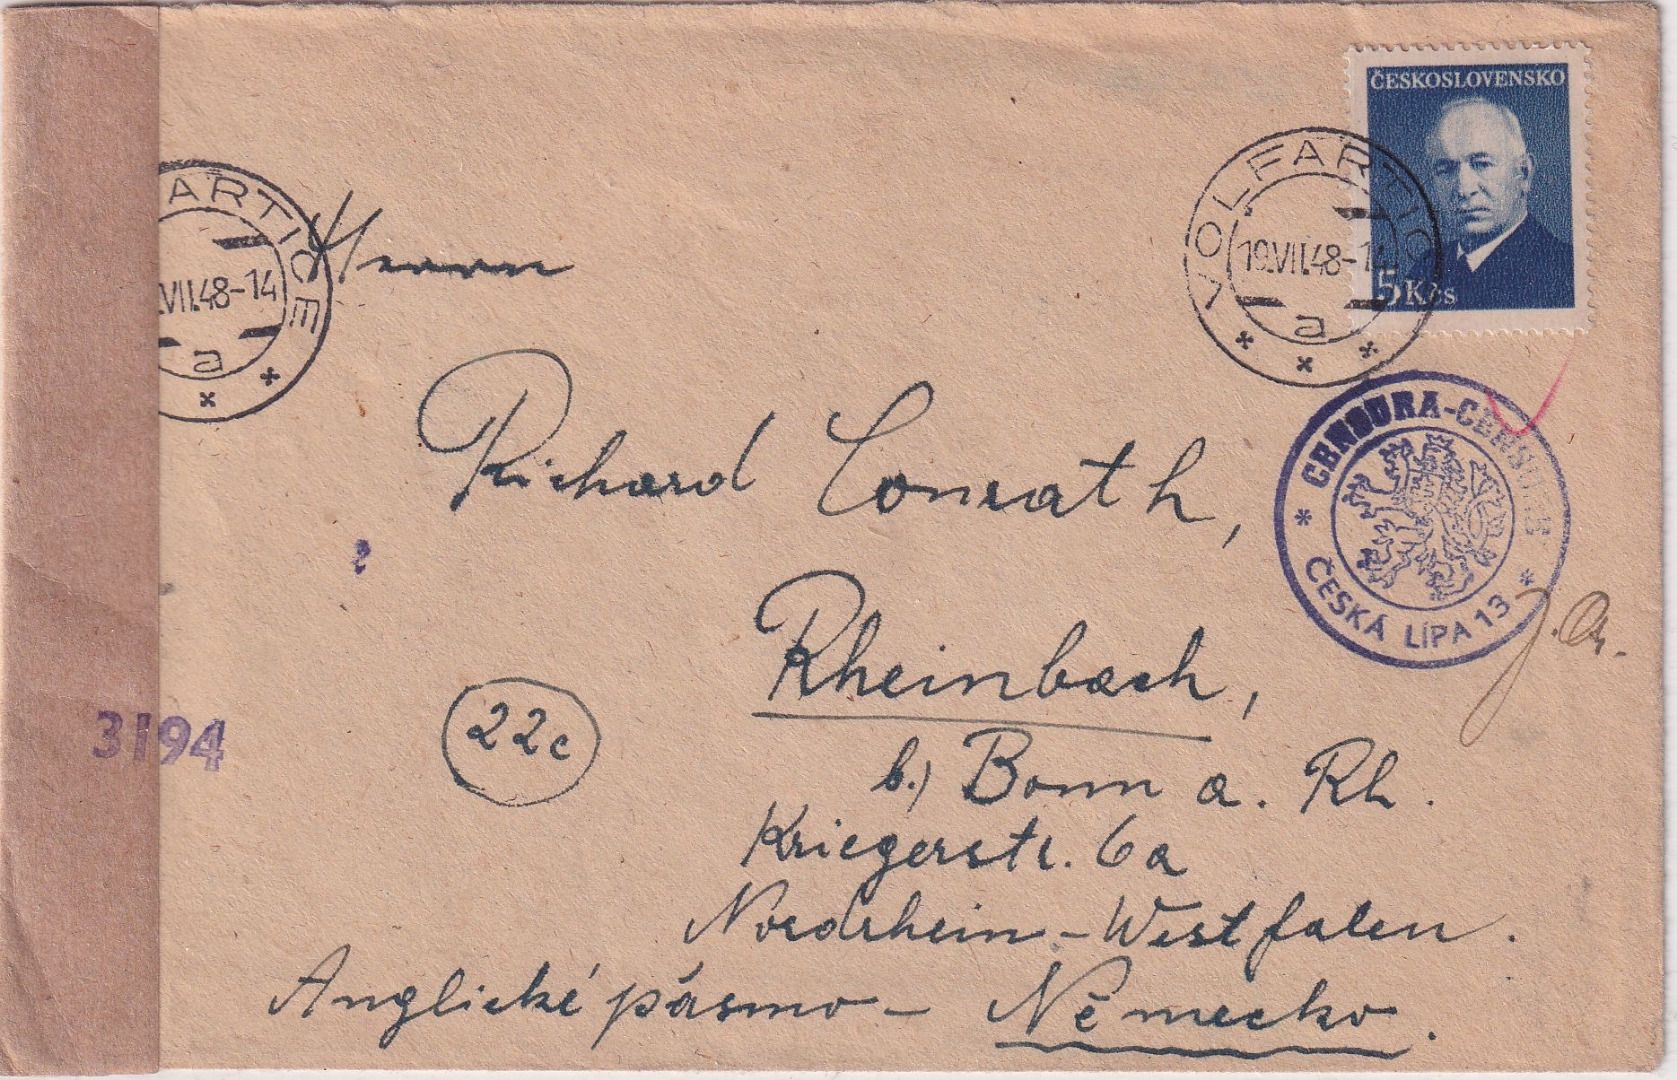 ČESKOSLOVENSKO
5 Kčs
VOLFARTICE
19.VII.48-14
a
ARTICE
.VII.48-14
a
CENSURA-CENSURE
ČESKÁ LÍPA 13
Herrn
Richard Conrath,
Rheinbach,
22c
b.) Bonn a. Rh.
3194
Kriegerstr. 6a
Nordrhein-Westfalen.
Anglické pásmo – Německo.